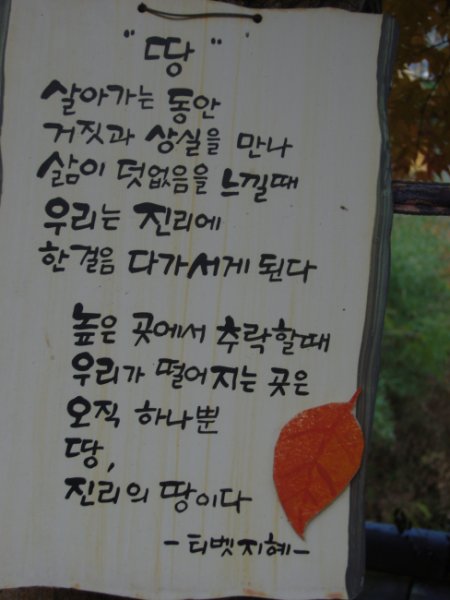 "땅"
살아가는 동안
거짓과 상실을 만나
삶이 덧없음을 느낄때
우리는 진리에
한걸음 다가서게 된다
높은 곳에서 추락할때
우리가 떨어지는 곳은
오직 하나뿐
땅,
진리의 땅이다
-티벳지혜-